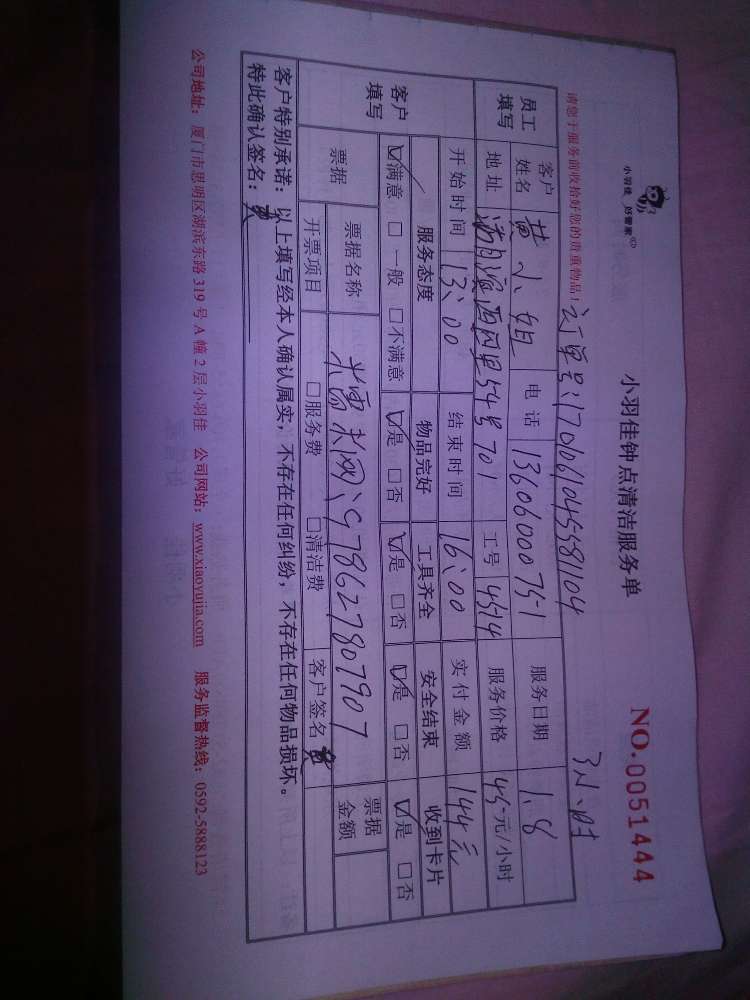 小羽佳 好管家
小羽佳钟点清洁服务单
NO.0051444
请您于服务前收拾好您的贵重物品!
3小时
员工填写 客户姓名 黄小姐 电话 服务日期 1.8
地址 54号701 工号 4514 服务价格 45元/小时
开始时间 13:00 结束时间 16:00 实付金额 144元
客户填写 服务态度 物品完好 工具齐全 安全结束 收到卡片
☑满意 □一般 □不满意 ☑是 □否 ☑是 □否 ☑是 □否 ☑是 □否
票据 票据名称 票据金额
开票项目 □服务费 □清洁费 客户签名 黄
客户特别承诺:以上填写经本人确认属实,不存在任何纠纷,不存在任何物品损坏。
特此确认签名:
公司地址:厦门市思明区湖滨东路319号A幢2层小羽佳 公司网站:www.xiaoyujia.com 服务监督热线:0592-5888123